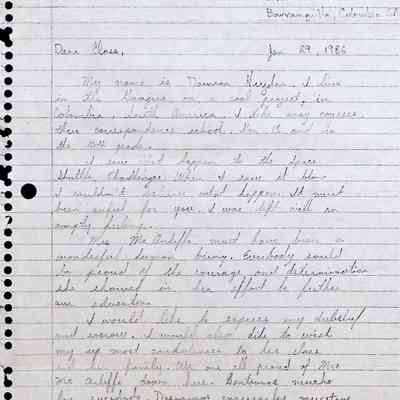 Barranquilla, Colombia
Dear Class, Jan 29, 1986
My name is Hayden. I live
in the on a coal project, in
Colombia, South America. I take my courses
thru correspondence school. I'm 15 and in
the 10th grade.
I saw what happen to the Space
Shuttle Challenger. When I saw it blow
I couldn't believe what happen. It must
been awful for you. I was left with an
empty feeling.
Mrs. Mc Auliffe must have been a
wonderful human being. Everybody could
be proud of the courage and determination
she showed in her effort to further
our education.
I would like to express my disbelief
and sorrow. I would also like to send
my up most condolences to her class
and her family. We are all proud of Mrs
Mc Auliffe down here. Sentimos mucho